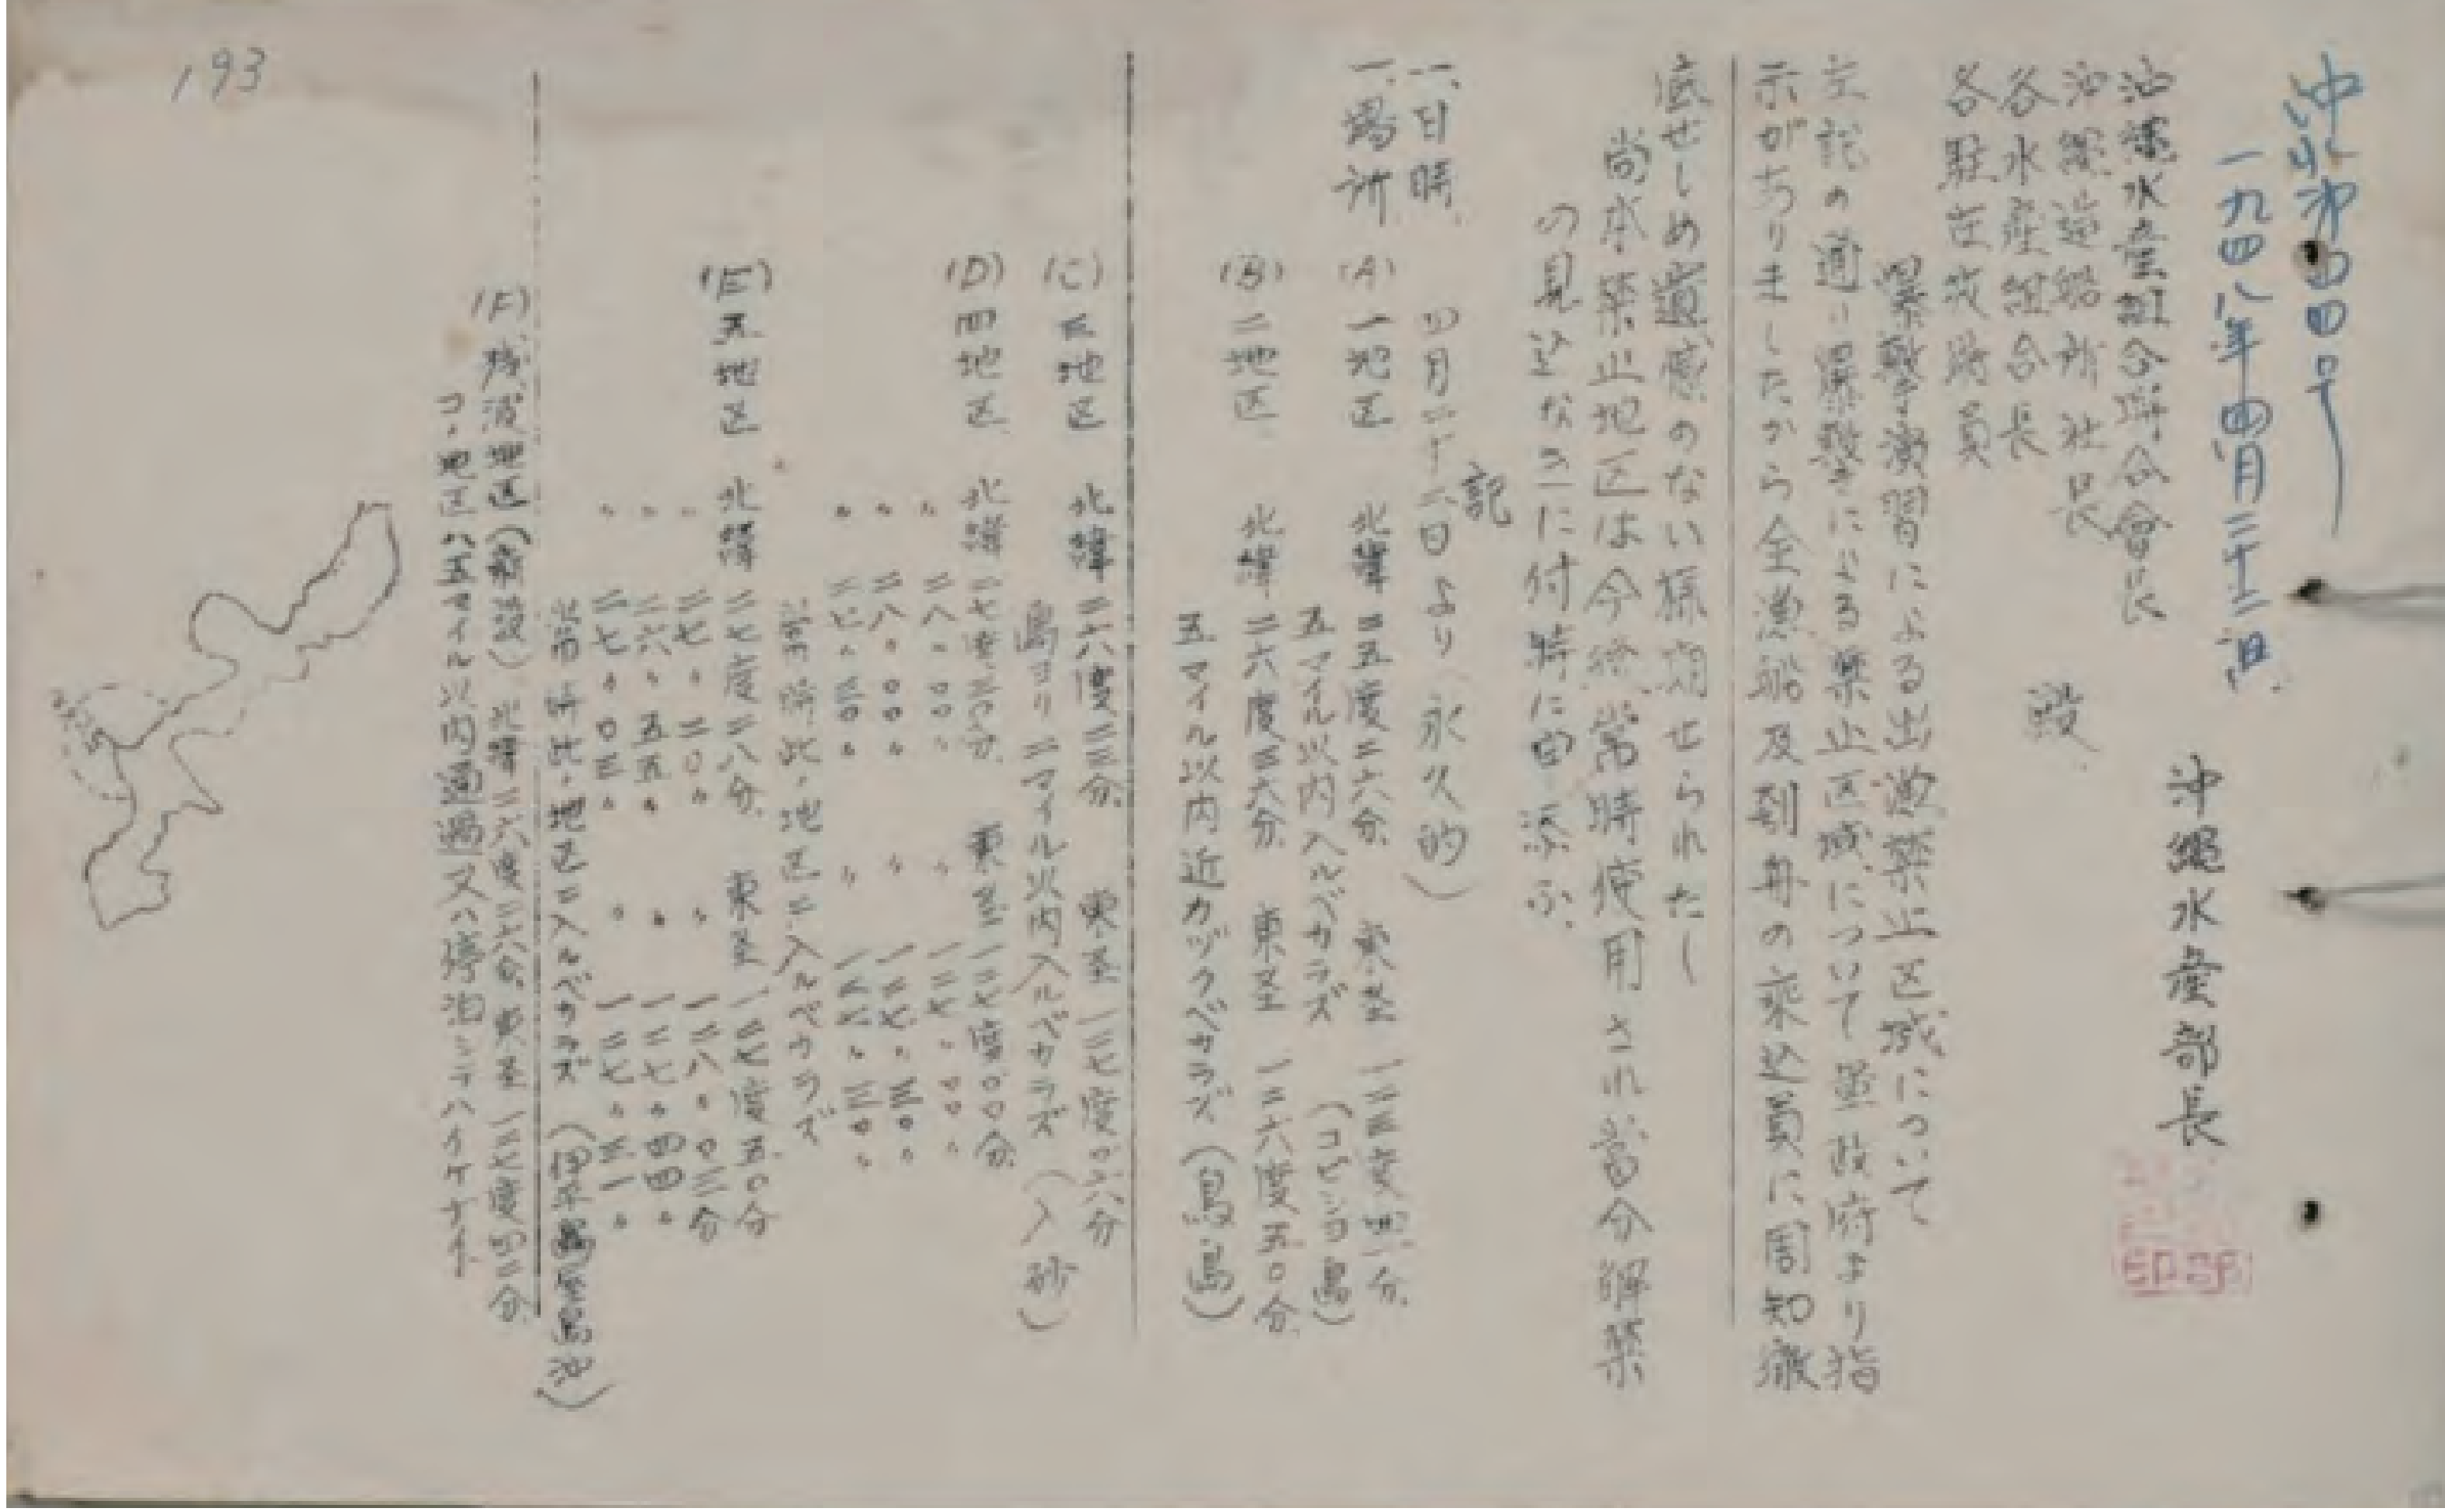 沖水第四四号
一九四八年四月二十二日
沖縄水産部長
沖縄水産組合聯合會長
沖縄造船所社長
各水産組合長
各駐在技時員
殿
爆撃演習による出漁禁止区域について
左記の通り爆撃による禁止区域について軍政府より指
示がありましたから全漁船及刳舟の乗込員に周知徹
底せしめ遺憾のない様期せられたし
尚本禁止地区は今後常時使用され當分解禁
の見込なきに付特に申添ふ
記
一、日時 四月二十六日より(永久的)
一、場所 (A) 一地区 北緯 二五度二六分 東至 一三三度 分
五マイル以内入ルベカラズ (コビショ島)
(B) 二地区 北緯 二六度三六分 東至 一二六度五〇分
五マイル以内近カヅクベカラズ (鳥島)
(C) 三地区 北緯 二六度二三分 東至 一二七度〇六分
島ヨリ二マイル以内入ルベカラズ (入砂)
(D) 四地区 北緯 二七度三〇分 東至 一二七度〇〇分
〃 二八〃〇〇〃 〃 一二七〃〇〇〃
〃 二八〃〇〇〃 〃 一二七〃三〇〃
〃 二七〃三〇〃 一二七〃三〇〃
常時此ノ地区ニ入ルベカラズ
(E) 五地区 北緯 二七度二八分 東至 一二七度五〇分
〃 二七〃二〇〃 〃 一二八〃〇三分
〃 二六〃五五〃 〃 一二七〃四四〃
〃 二七〃〇三〃 〃 一二七〃三一〃
常時此ノ地区ニ入ルベカラズ (伊平屋島沖)
(F) 残波地区(新設) 北緯 二六度二六分 東至 一二七度四二分
コノ地区ハ五マイル以内通過又ハ停泊シテハイケナイ
193